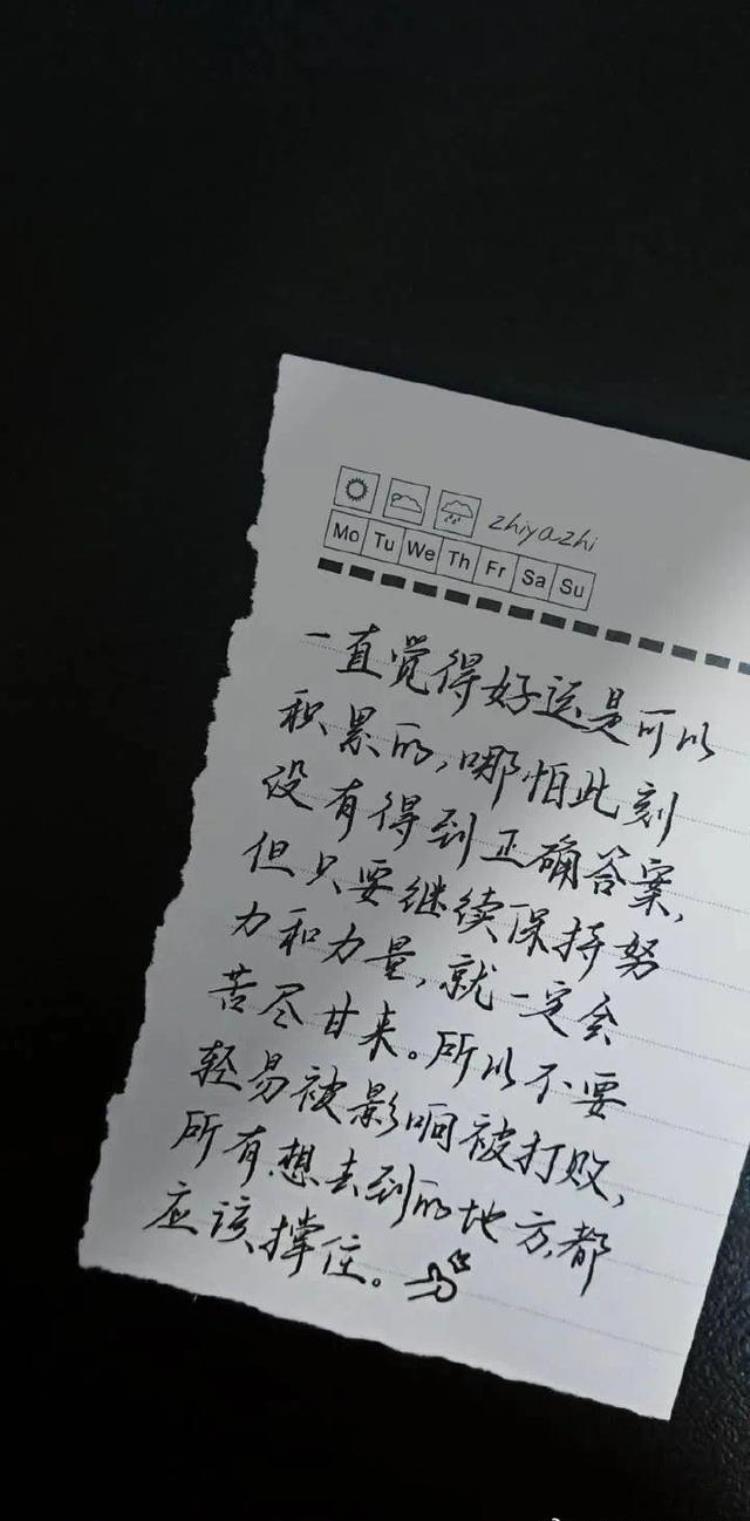 zhiyazhi
Mo Tu We Th Fr Sa Su
一直觉得好运是可以
积累的,哪怕此刻
没有得到正确答案,
但只要继续保持努
力和力量,就一定会
苦尽甘来。所以不要
轻易被影响被打败,
所有想去到的地方,都
应该撑住。